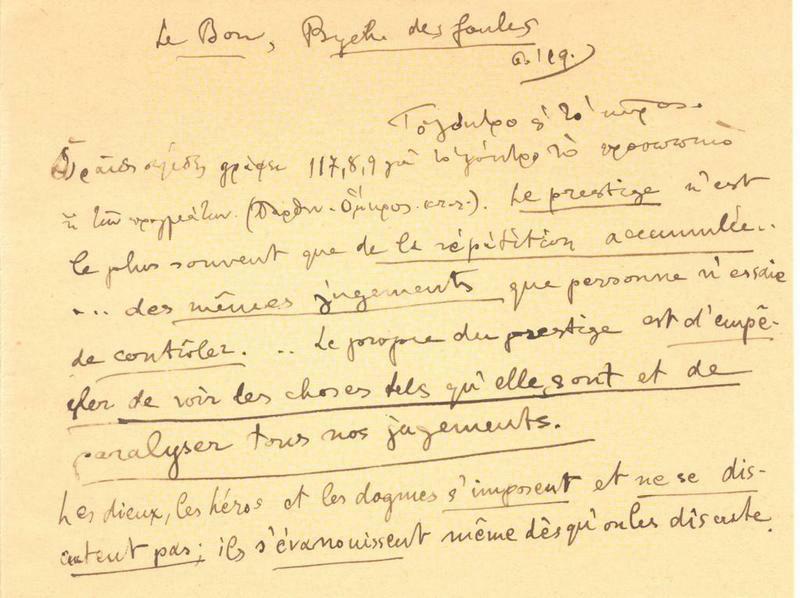 Le Bon, Psych. des foules
Τὸ γόητρο κ' τὸ κῦρος.
σελίδες γράφει 117,8,9 γιὰ τὸ γόητρο τὸ προσωπικὸ
ἢ τῶν πραγμάτων. (Παρθεν. Ὅμηρος κτλ.). Le prestige n'est
le plus souvent que de la répétition accumulée..
... des mêmes jugements que personne n'essaie
de contrôler. .. Le propre du prestige est d'empê-
cher de voir les choses tels qu'elle sont et de
paralyser tous nos jugements.
Les dieux, les héros et les dogmes s'imposent et ne se dis-
cutent pas; ils s'évanouissent même dès qu'on les discute.